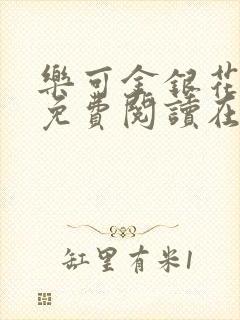 樂可金銀花
免費閱讀在
缸里有米1